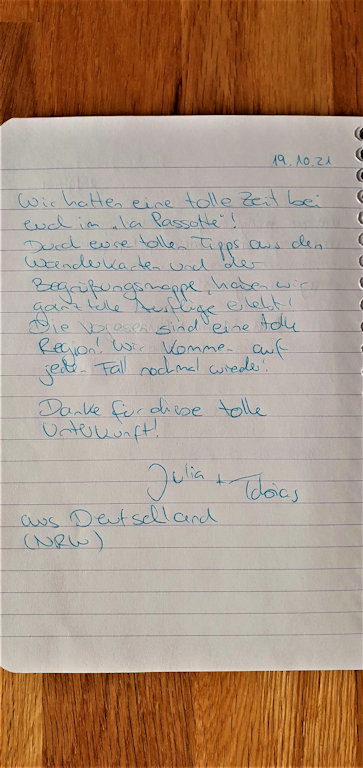 19.10.21
Wir hatten eine tolle Zeit bei
euch im "La Passotte"!
Durch eure tollen Tipps aus den
Wanderkarten und der
Begrüßungsmappe haben wir
ganz tolle Ausflüge erlebt!
Die Vogesen sind eine tolle
Region! Wir kommen auf
jeden Fall nochmal wieder!
Danke für diese tolle
Unterkunft!
Julia + Tobias
aus Deutschland
(NRW)